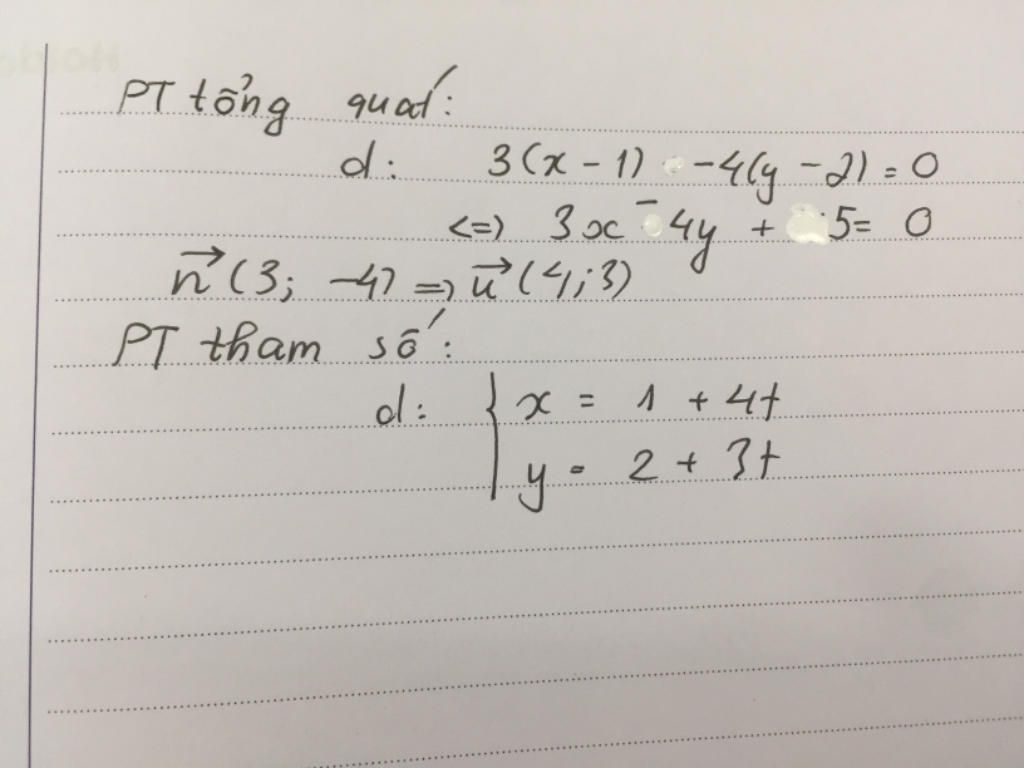 PT tổng quát:
d: 3(x - 1) -4(y - 2) = 0
<=> 3x - 4y + 5 = 0
n⃗ (3; -4) => u⃗ (4; 3)
PT tham số:
d: { x = 1 + 4t
y = 2 + 3t